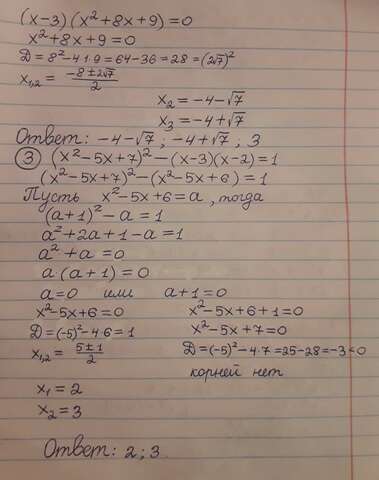 (x-3)(x²+8x+9)=0
x²+8x+9=0
D=8²-4·9=64-36=28=(2√7)²
x₁,₂=(-8±2√7)/2
x₂=-4-√7
x₃=-4+√7
Ответ: -4-√7; -4+√7; 3
③ (x²-5x+7)²-(x-3)(x-2)=1
(x²-5x+7)²-(x²-5x+6)=1
Пусть x²-5x+6=a, тогда
(a+1)²-a=1
a²+2a+1-a=1
a²+a=0
a(a+1)=0
a=0 или a+1=0
x²-5x+6=0 x²-5x+6+1=0
D=(-5)²-4·6=1 x²-5x+7=0
x₁,₂=(5±1)/2 D=(-5)²-4·7=25-28=-3<0
корней нет
x₁=2
x₂=3
Ответ: 2; 3.